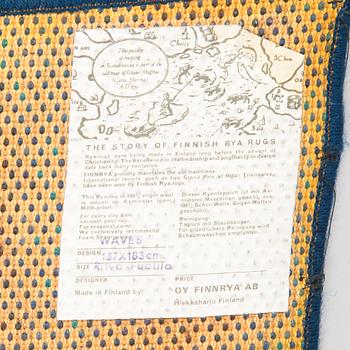 This puzzle
of buying
in Scandinavia is part of the
old map of Olaus Magnus
Carta Marina
A.D. 1539
THE STORY OF FINNISH RYA RUGS
Rya-rugs were being made in Finland long before the advent of
Christianity. The excellence in craftsmanship and originality in design
date back many centuries.
FINNRYA proudly maintains the old traditions.
International laurels, such as two Grand Prix at Milan Triennales,
have been won by Finnish Rya-rugs.
This Rya-rug in virgin wool
is woven on Axminster looms.
Mothproof.
For every day care:
vacuum and
For seasonal care:
We exclusively recommend
Foam Shampoo
Dieser Ryenteppich ist mit Ax-
minster Maschinen gewebt, aus
Schur-Wolle. Gegen Motten
geschützt.
Reinigung:
Täglich mit Staubsauger.
Für gründlichere Reinigung wird
Schaumwaschen empfohlen.
DESIGN WAVES
SIZE 137X183cm
DESIGNER
PRICE
Made in Finland by:
OY FINNRYA AB
Hiekkaharju Finland